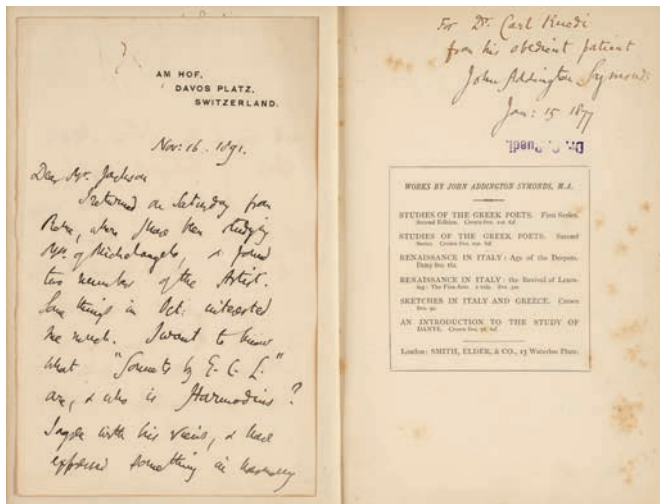 AM HOF,
DAVOS PLATZ,
SWITZERLAND.
Nov: 16. 1891.
Dear Mr. Jackson
I returned on Saturday from
Rome, where I have been studying
Mss. of Michelangelo, & found
two numbers of the Artist.
Some things in Oct: interested
me much. I want to know
what "Sonnets by E. C. L."
are, & who is Harmodius?
I agree with his views, & have
expressed something in
For Dr. Carl Ruedi
from his obedient patient
John Addington Symonds
Jan: 15 1877
Dr. C. Ruedi.
WORKS BY JOHN ADDINGTON SYMONDS, M.A.
STUDIES OF THE GREEK POETS. First Series.
Second Edition. Crown 8vo. 10s. 6d.
STUDIES OF THE GREEK POETS. Second
Series. Crown 8vo. 10s. 6d.
RENAISSANCE IN ITALY: Age of the Despots.
Demy 8vo. 16s.
RENAISSANCE IN ITALY: the Revival of Learn-
ing: The Fine Arts. 2 vols. 8vo. 32s.
SKETCHES IN ITALY AND GREECE. Crown
8vo. 9s.
AN INTRODUCTION TO THE STUDY OF
DANTE. Crown 8vo. 7s. 6d.
London: SMITH, ELDER, & CO., 15 Waterloo Place.